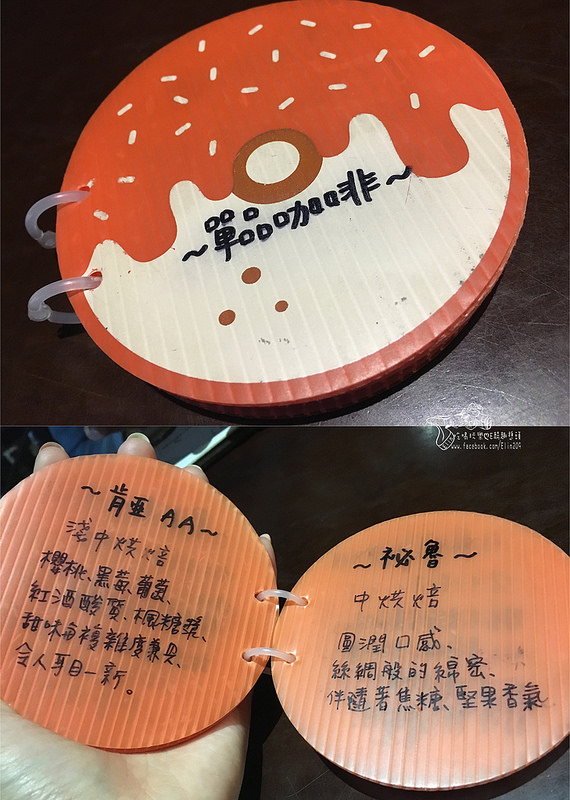 ~單品咖啡~
www.facebook.com/Elin204
~肯亞 AA~
淺中烘焙
櫻桃、黑莓、葡萄、
紅酒酸質、楓糖漿、
甜味與複雜度兼具、
令人耳目一新。
~祕魯~
中烘焙
圓潤口感、
絲綢般的綿密、
伴隨著焦糖、堅果香氣